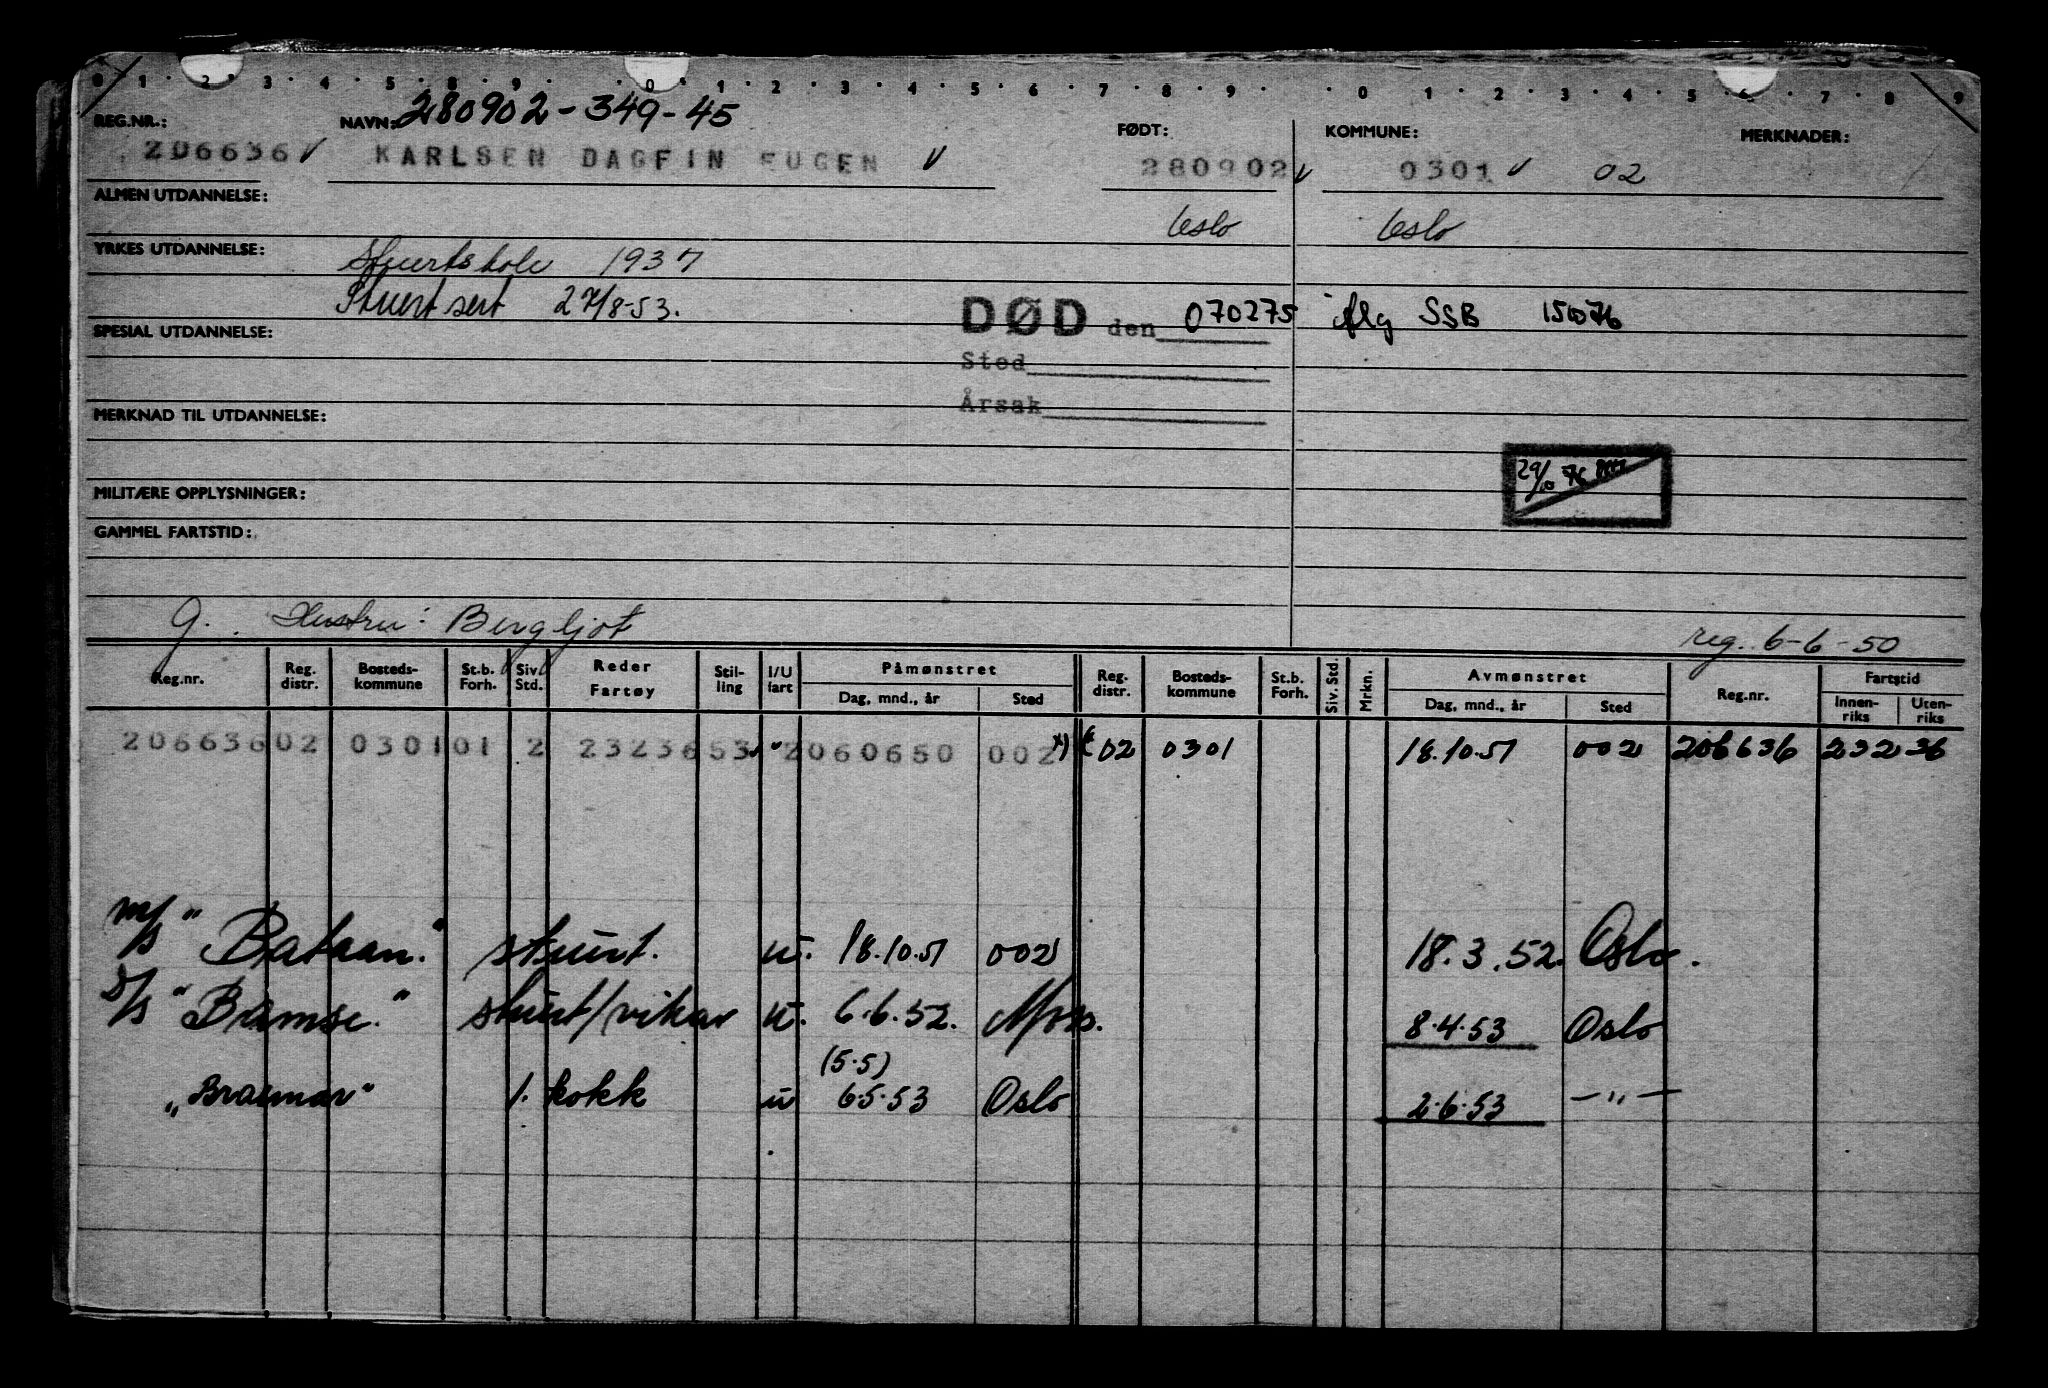 0 1 2 3 4 5 8 9 0 1 2 3 4 5 6 7 8 9 0 1 2 3 4 5 6 7 8 9
280902-349-45
REG.NR.: NAVN: FØDT: KOMMUNE: MERKNADER:
206636 V KARLSEN DAGFIN EUGEN V 280902 V 0301 V 02
ALMEN UTDANNELSE:
Oslo Oslo
YRKES UTDANNELSE: Stuertskole 1937
Stuert sert 27/8-53.
DØD den 070275 iflg SSB 151076
SPESIAL UTDANNELSE:
Sted
Årsak
MERKNAD TIL UTDANNELSE:
29/10 76
MILITÆRE OPPLYSNINGER:
GAMMEL FARTSTID:
G. Hustru: Bergljot
reg. 6-6-50
Reg.nr. Reg. distr. Bosteds- kommune St.b. Forh. Siv. Std. Reder Fartøy Stil- ling I/U fart Påmønstret Dag, mnd., år Sted Reg. distr. Bosteds- kommune St.b. Forh. Siv. Std. Mrkn. Avmønstret Dag, mnd., år Sted Reg.nr. Fartstid Innen- riks Uten- riks
206636 02 0301 01 2 2323653 2 060650 002 02 0301 18.10.51 002 206636 232 36
M/S "Bataan." stuert. u. 18.10.51 002 18.3.52. Oslo.
D/S "Bamse." stuert/vikar u. 6.6.52. Moss. 8.4.53 Oslo
(5.5)
"Braemar" 1. kokk u 6.5.53 Oslo 2.6.53 —"—